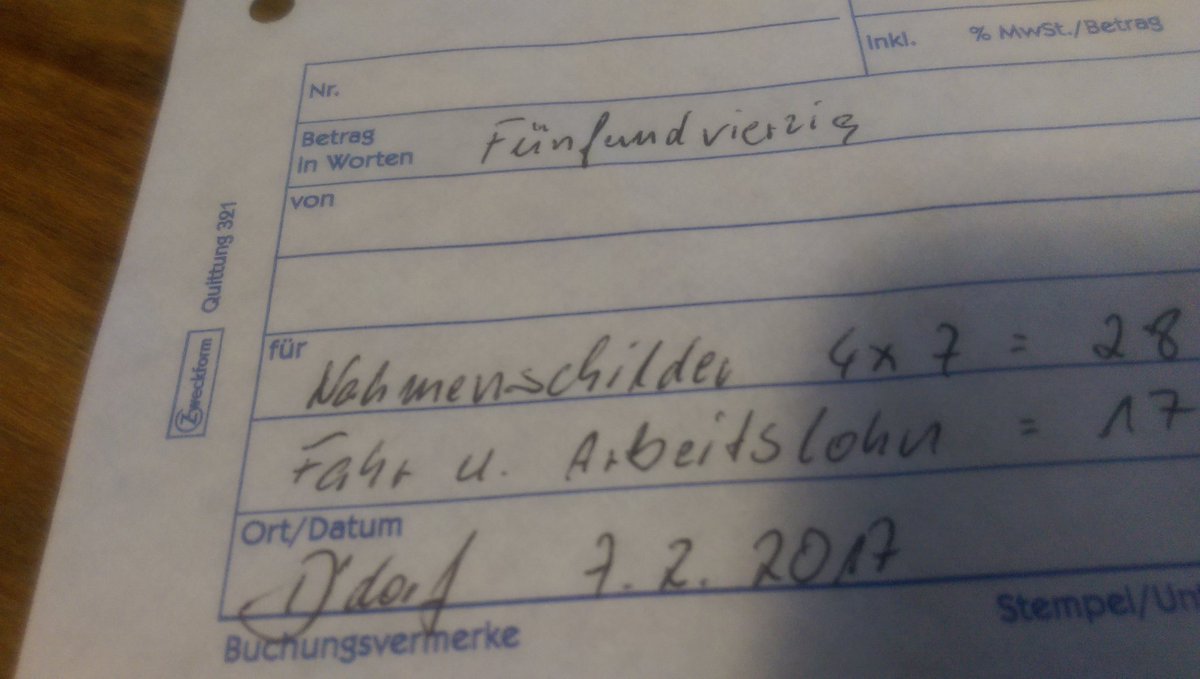 Inkl. % MwSt./Betrag
Nr.
Betrag
in Worten Fünfundvierzig
von
für
Nahmenschilder 4 x 7 = 28
Fahr u. Arbeitslohn = 17
Ort/Datum
D'dorf 7.2.2017
Buchungsvermerke
Stempel/Un
Zweckform Quittung 321